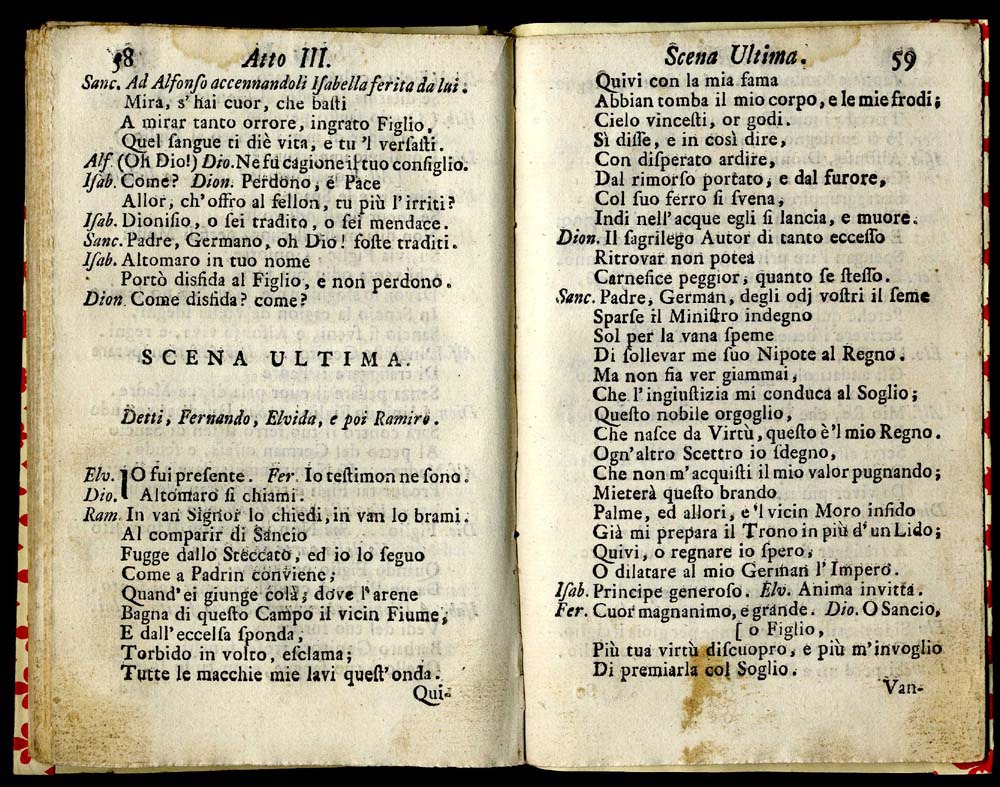 58 Atto III.
Sanc. Ad Alfonſo accennandoli Iſabella ferita da lui.
Mira, s'hai cuor, che baſti
A mirar tanto orrore, ingrato Figlio,
Quel ſangue ti diè vita, e tu 'l verſaſti.
Alf. (Oh Dio!) Dio. Ne fu cagione il tuo conſiglio.
Iſab. Come? Dion. Perdono, e Pace
Allor, ch'offro al fellon, tu più l'irriti?
Iſab. Dioniſio, o ſei tradito, o ſei mendace.
Sanc. Padre, Germano, oh Dio! foſte traditi.
Iſab. Altomaro in tuo nome
Portò disfida al Figlio, e non perdono.
Dion. Come disfida? come?
SCENA ULTIMA.
Detti, Fernando, Elvida, e poi Ramiro.
Elv. IO fui preſente. Fer. Io teſtimon ne ſono.
Dio. Altomaro ſi chiami.
Ram. In van Signor lo chiedi, in van lo brami.
Al comparir di Sancio
Fugge dallo Steccato, ed io lo ſeguo
Come a Padrin conviene;
Quand'ei giunge colà, dove l'arene
Bagna di queſto Campo il vicin Fiume,
E dall'eccelſa ſponda,
Torbido in volto, eſclama;
Tutte le macchie mie lavi queſt'onda.
Qui-
Scena Ultima. 59
Quivi con la mia fama
Abbian tomba il mio corpo, e le mie frodi;
Cielo vinceſti, or godi.
Sì diſſe, e in così dire,
Con diſperato ardire,
Dal rimorſo portato, e dal furore,
Col ſuo ferro ſi ſvena,
Indi nell'acque egli ſi lancia, e muore.
Dion. Il ſagrilego Autor di tanto ecceſſo
Ritrovar non potea
Carnefice peggior, quanto ſe ſteſſo.
Sanc. Padre, German, degli odj voſtri il ſeme
Sparſe il Miniſtro indegno
Sol per la vana ſpeme
Di ſollevar me ſuo Nipote al Regno.
Ma non fia ver giammai,
Che l'ingiuſtizia mi conduca al Soglio;
Queſto nobile orgoglio,
Che naſce da Virtù, queſto è 'l mio Regno.
Ogn'altro Scettro io ſdegno,
Che non m'acquiſti il mio valor pugnando;
Mieterà queſto brando
Palme, ed allori, e 'l vicin Moro infido
Già mi prepara il Trono in più d'un Lido;
Quivi, o regnare io ſpero,
O dilatare al mio German l'Impero.
Iſab. Principe generoſo. Elv. Anima invitta.
Fer. Cuor magnanimo, e grande. Dio. O Sancio,
[ o Figlio,
Più tua virtù diſcuopro, e più m'invoglio
Di premiarla col Soglio.
Van-